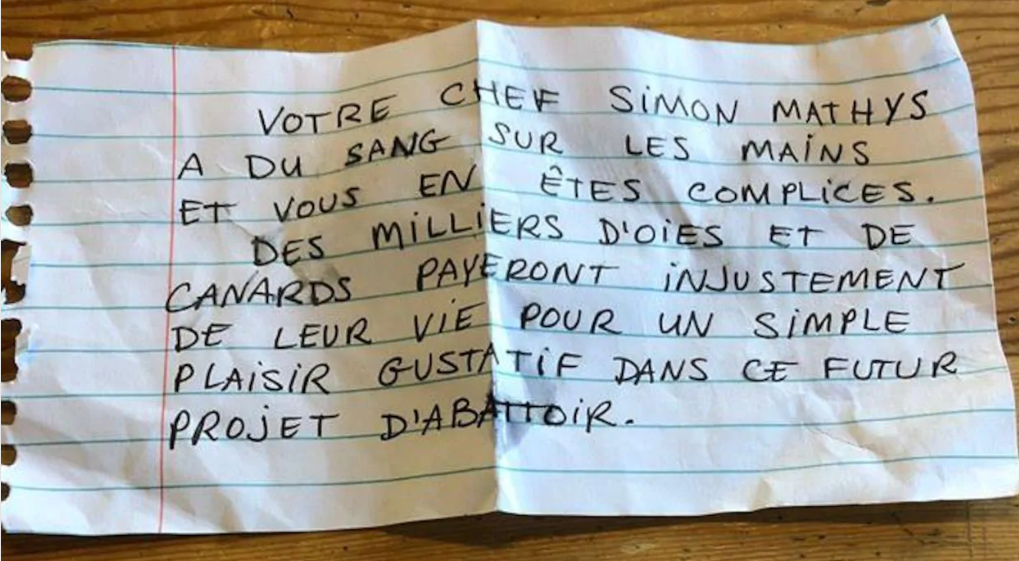 VOTRE CHEF SIMON MATHYS
A DU SANG SUR LES MAINS
ET VOUS EN ÊTES COMPLICES.
DES MILLIERS D'OIES ET DE
CANARDS PAYERONT INJUSTEMENT
DE LEUR VIE POUR UN SIMPLE
PLAISIR GUSTATIF DANS CE FUTUR
PROJET D'ABATTOIR.